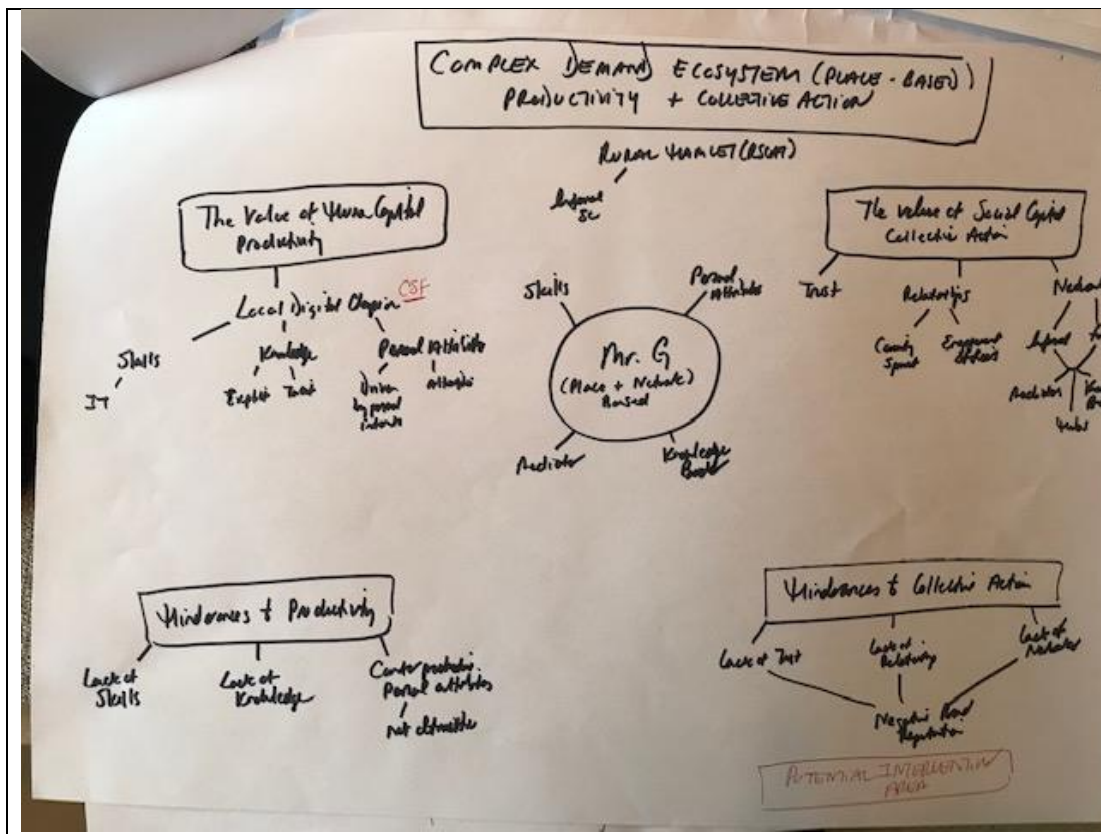 COMPLEX DEMAND ECOSYSTEM (PLACE-BASED)
PRODUCTIVITY + COLLECTIVE ACTION
RURAL HAMLET
Informal
The Value of Human Capital
Productivity
Local Digital Champion
CSF
Skills
IT
Knowledge
Explicit
Tacit
Personal Attributes
Driven
by personal
interests
Skills
Personal
Attributes
Mr. G
(Place + Network)
Based
Mediator
Knowledge
Broker
The Value of Social Capital
Collective Action
Trust
Relationships
Community
Spirit
Informal
Mediators
Hubs
Hindrances to Productivity
Lack of
Skills
Lack of
Knowledge
Counterproductive
Personal attributes
Not
Hindrances to Collective Action
Lack of Trust
Lack of
Lack of
Networks
Negative
Reputation
POTENTIAL INTERVENTION
AREA